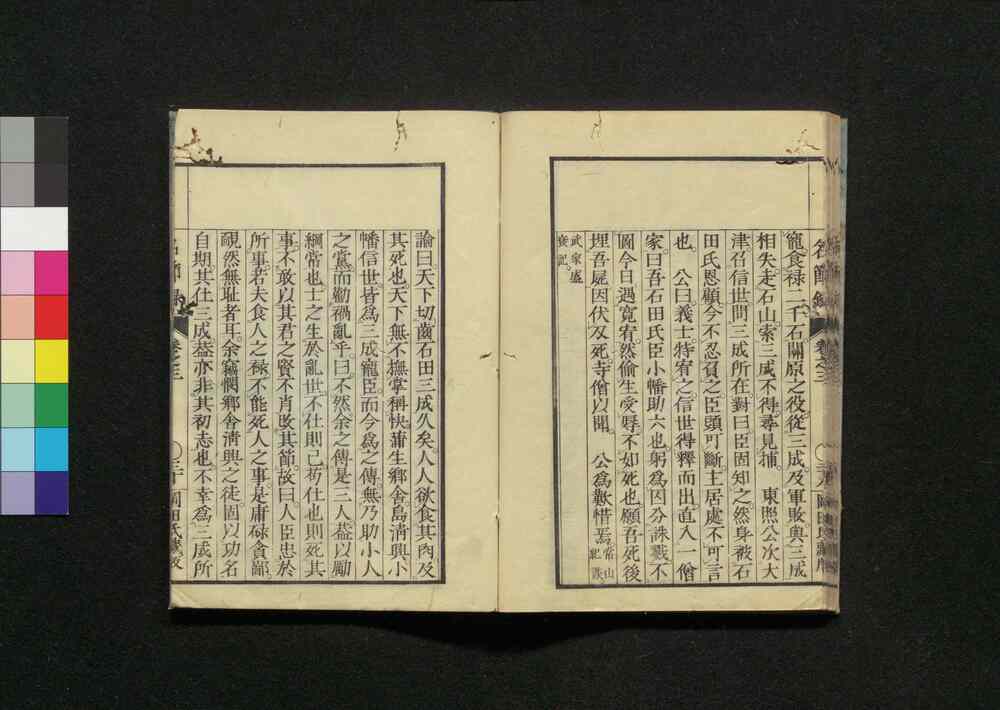 名節錄 卷之三
寵食祿二千石關原之役從三成及軍敗與三成
相失走石山索三成不得尋見捕。 東照公次大
津召信世問三成所在對曰臣固知之然身被石
田氏恩顧今不忍負之臣頭可斷主居處不可言
也。 公曰義士特宥之信世得釋而出直入一僧
家曰吾石田氏臣小幡助六也躬為囚分誅戮不
圖今日遇寬宥然偷生受辱不如死也願吾死後
埋吾屍因伏刄死寺僧以聞。 公為歎惜焉常山紀談
武家盛衰記。
論曰天下切齒石田三成久矣人人欲食其肉及
其死也天下無不撫掌稱快蒲生鄉舍島淸興小
幡信世皆為三成寵臣而今為之傳無乃助小人
之黨而勸禍亂乎曰不然余之傳是三人葢以勵
綱常也士之生於亂世不仕則已苟仕也則死其
事不敢以其君之賢不肖敗其節故曰人臣忠於
所事者夫食人之祿不能死人之事是庸碌貪鄙
靦然無耻者耳余竊憫鄉舍淸興之徒固以功名
自期其仕三成葢亦非其初志也不幸為三成所
名節錄 卷之三 三十 岡田氏藏